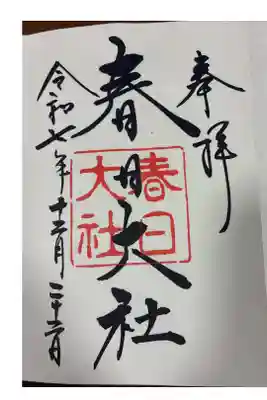 奉拝
春日大社
春日
大社
令和七年十二月二十二日